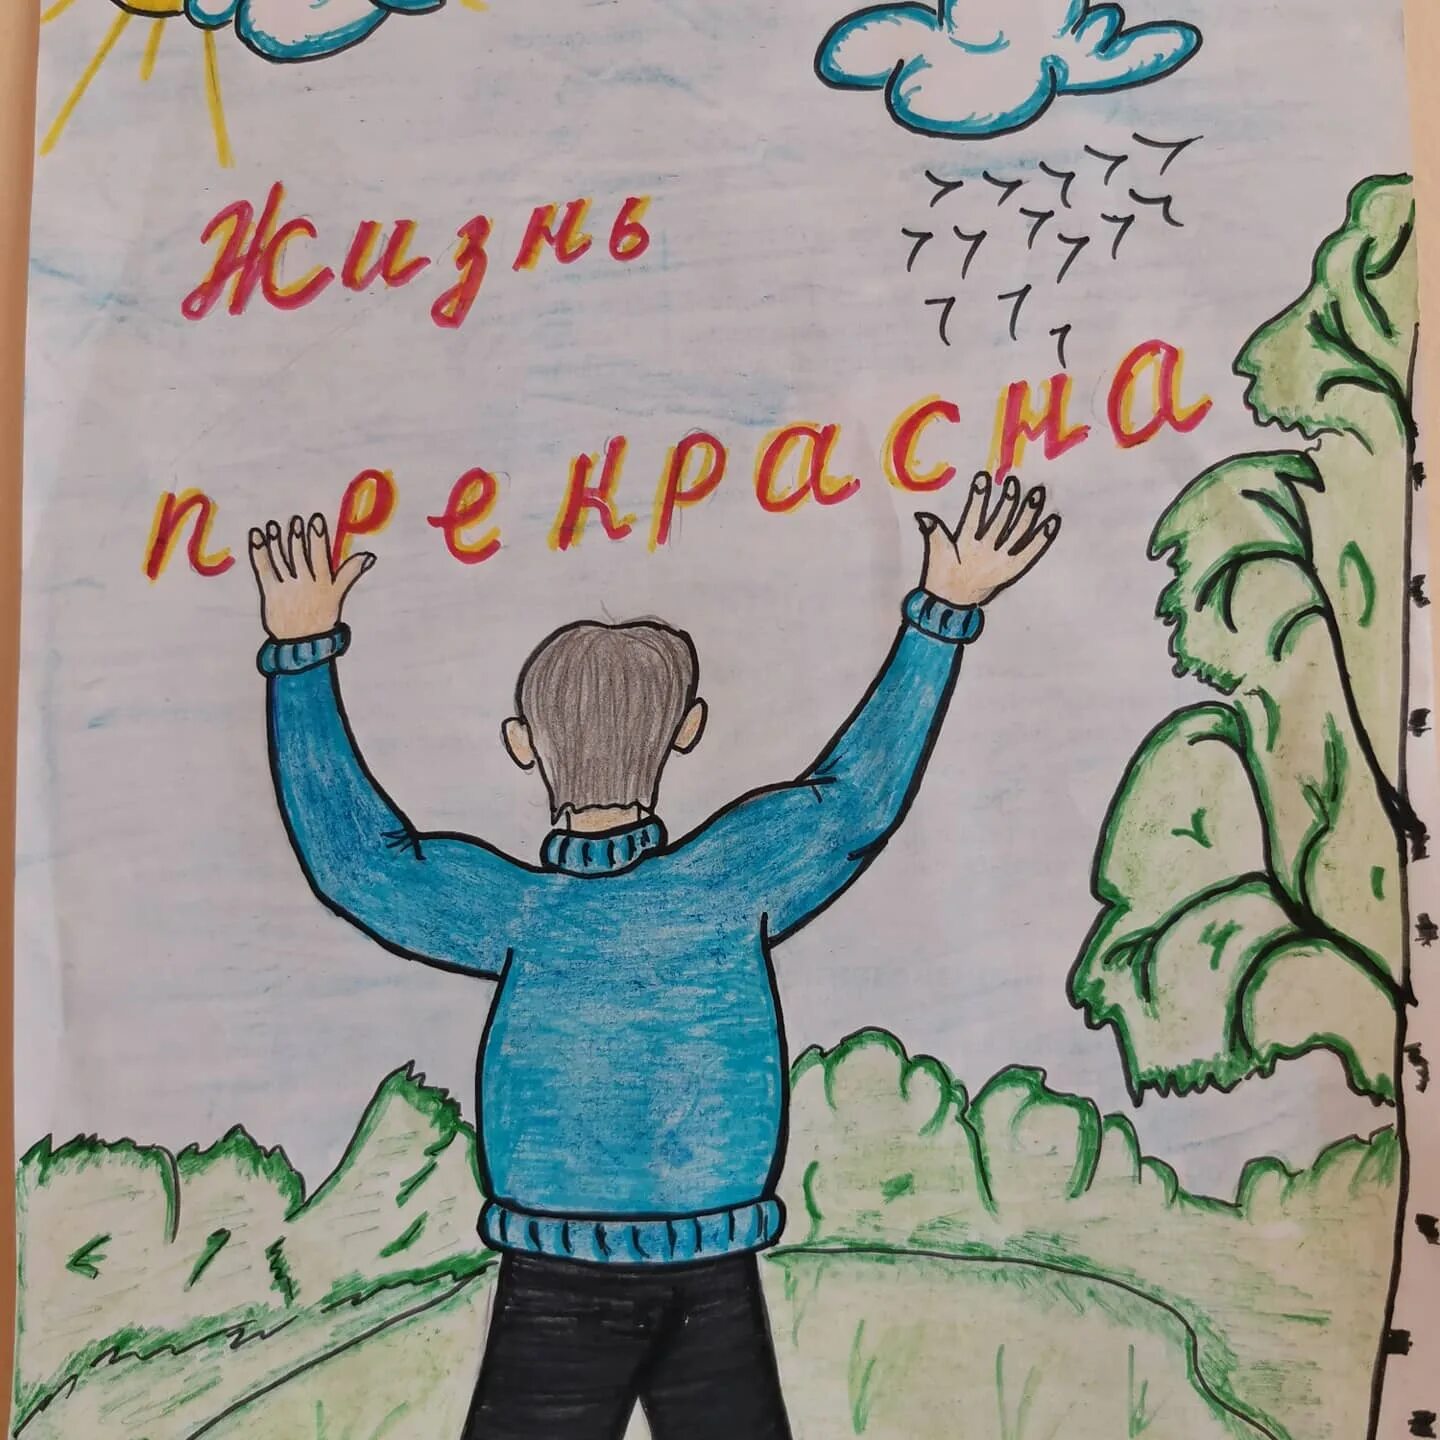 Жизнь
прекрасна